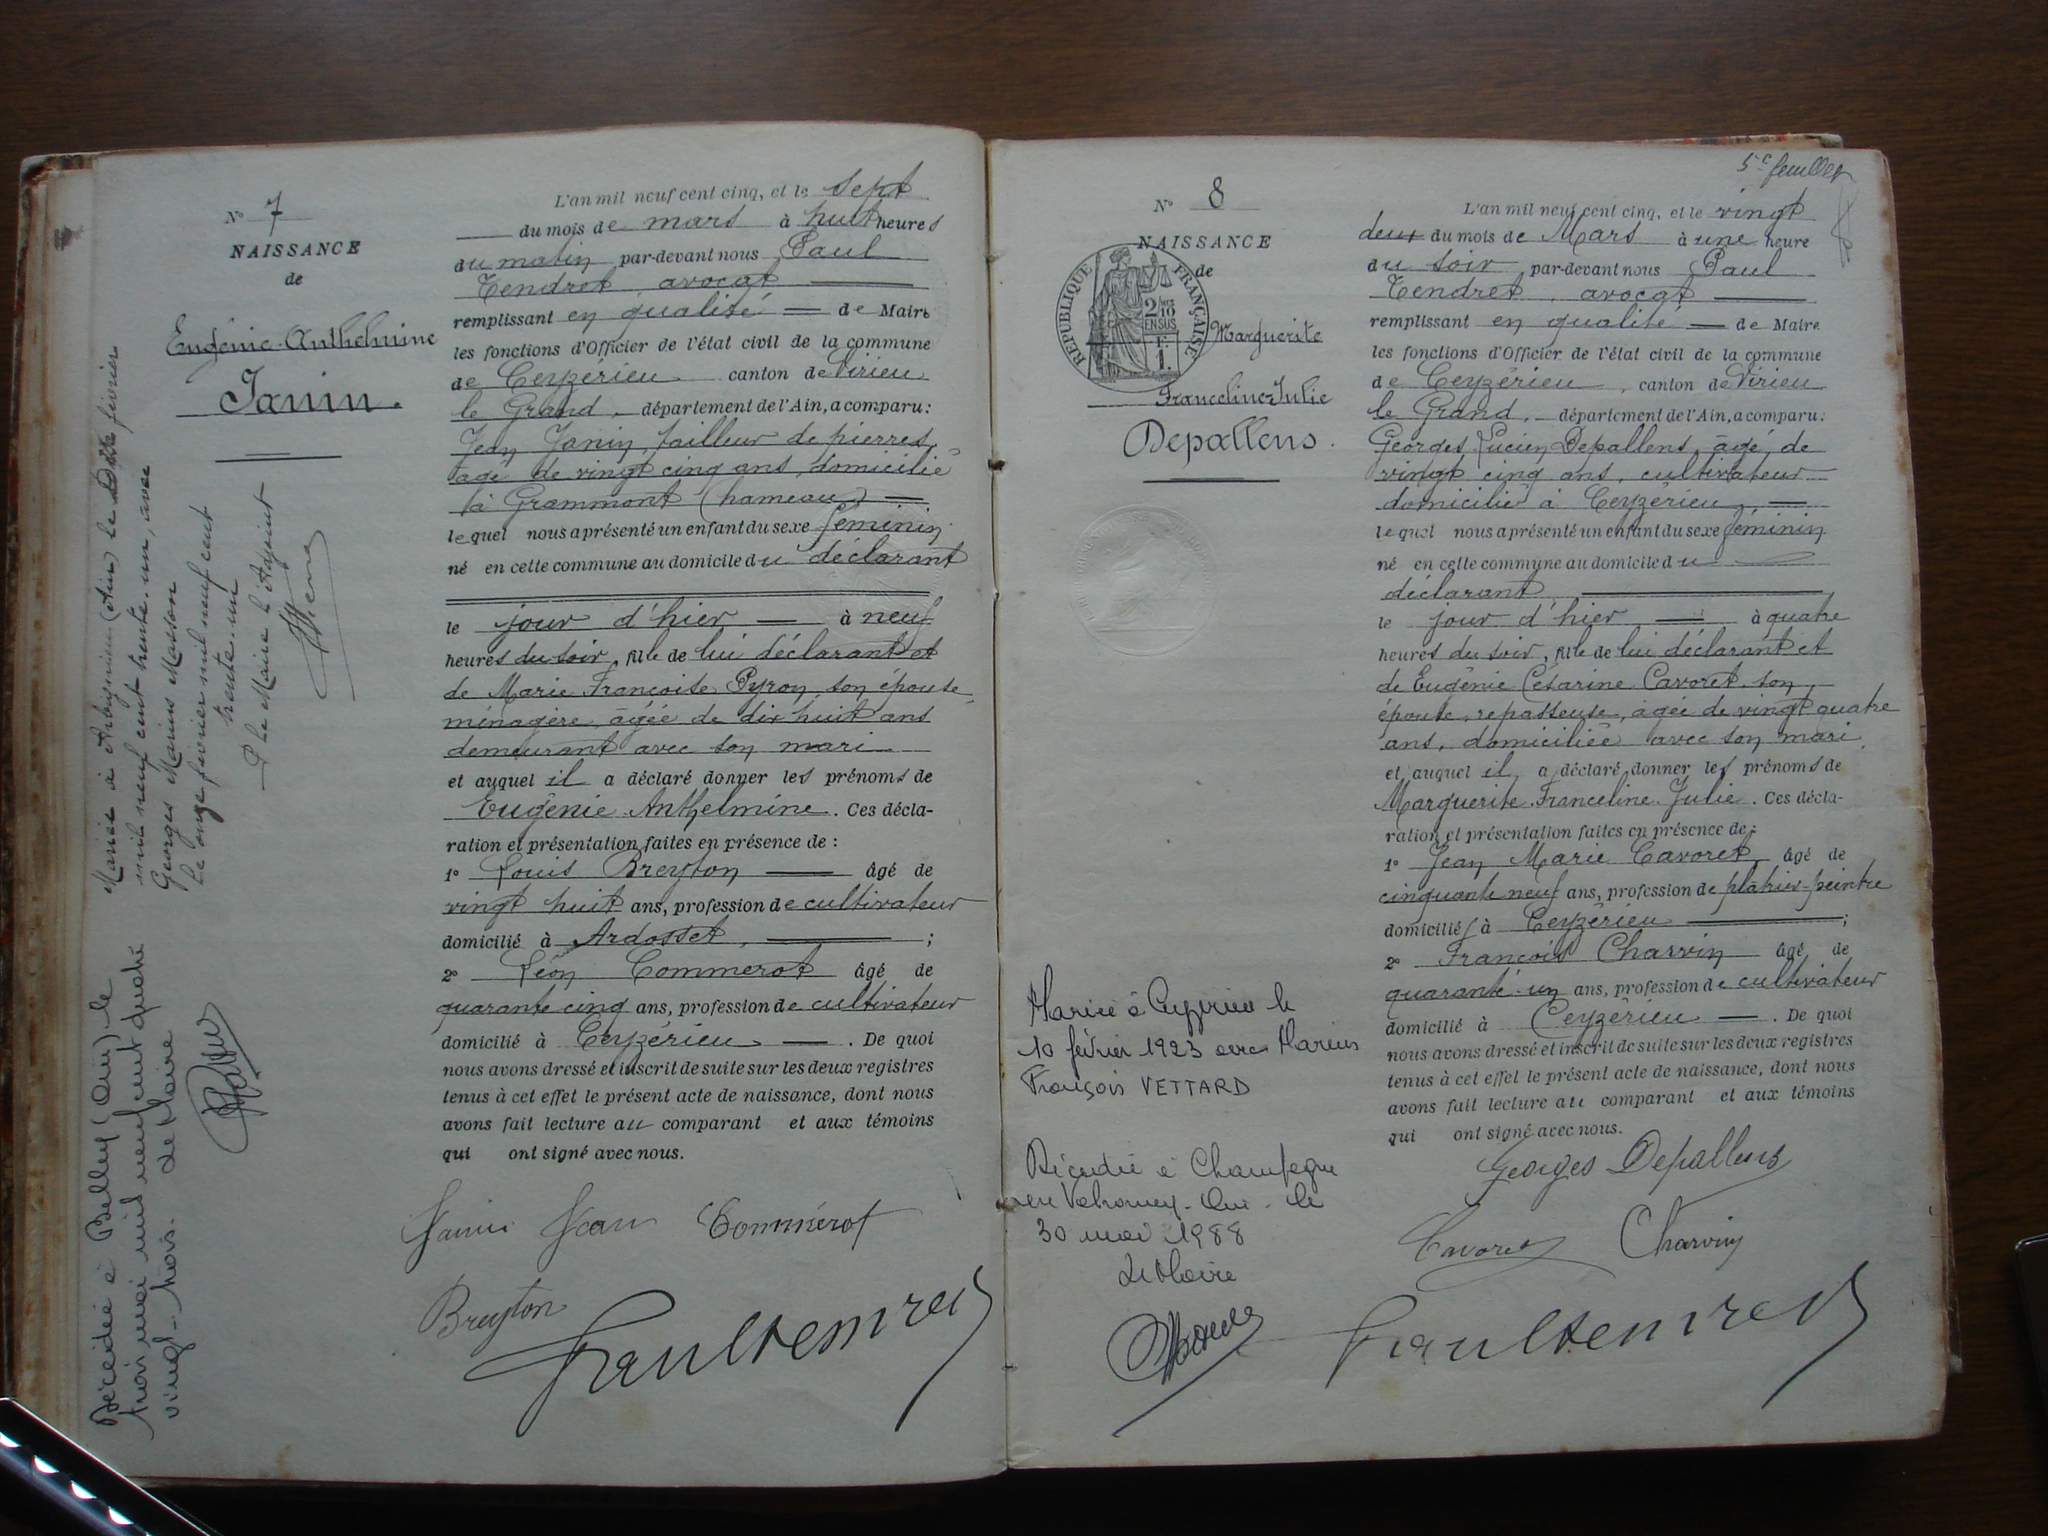 N° 7
NAISSANCE
de
Eugénie Anthelmine
Janin.
Mariée à Arbignieu (Ain) le février
mil neuf cent trente-un, avec
Georges Marius Masson
Le onze février mil neuf cent
trente-un
P. le Maire l'Adjoint
Décédée à Belley (Ain) le
trois mai mil neuf cent quatre
vingt-trois. Le Maire
L'an mil neuf cent cinq, et le sept
du mois de mars à huit heures
du matin par-devant nous Paul
Tendret avocat
remplissant en qualité de Maire
les fonctions d'Officier de l'état civil de la commune
de Ceyzérieu canton de Virieu
le Grand, département de l'Ain, a comparu :
Jean Janin, tailleur de pierres,
âgé de vingt cinq ans, domicilié
à Grammont (hameau)
lequel nous a présenté un enfant du sexe féminin
né en cette commune au domicile du déclarant
le jour d'hier à neuf
heures du soir, fille de lui déclarant et
de Marie Françoise Pyron, son épouse,
ménagère, âgée de dix huit ans
demeurant avec son mari
et auquel il a déclaré donner les prénoms de
Eugénie Anthelmine. Ces décla-
ration et présentation faites en présence de :
1° Louis Breyton âgé de
vingt huit ans, profession de cultivateur
domicilié à Ardosset, ;
2° Léon Commerot âgé de
quarante cinq ans, profession de cultivateur
domicilié à Ceyzérieu. De quoi
nous avons dressé et inscrit de suite sur les deux registres
tenus à cet effet le présent acte de naissance, dont nous
avons fait lecture au comparant et aux témoins
qui ont signé avec nous.
Janin Jean Commérot
Breyton
Paul Tendret
5e feuillet
N° 8
NAISSANCE
de
RÉPUBLIQUE FRANÇAISE
2/10
EN SUS
1.
Marguerite
Franceline Julie
Depallens.
Mariée à Ceyzérieu le
10 février 1923 avec Marius
François VETTARD
Décédée à Champagne
en Valromey. Ain. le
30 mai 1988
Le Maire
L'an mil neuf cent cinq, et le vingt
deux du mois de Mars à une heure
du soir, par-devant nous Paul
Tendret, avocat
remplissant en qualité de Maire
les fonctions d'Officier de l'état civil de la commune
de Ceyzérieu, canton de Virieu
le Grand, département de l'Ain, a comparu :
Georges Lucien Depallens, âgé de
vingt cinq ans, cultivateur
domicilié à Ceyzérieu
lequel nous a présenté un enfant du sexe féminin
né en cette commune au domicile du
déclarant
le jour d'hier à quatre
heures du soir, fille de lui déclarant et
de Eugénie Césarine Cavoret, son
épouse, repasseuse, âgée de vingt quatre
ans, domiciliée avec son mari
et auquel il a déclaré donner les prénoms de
Marguerite Franceline Julie. Ces décla-
ration et présentation faites en présence de :
1° Jean Marie Cavoret, âgé de
cinquante neuf ans, profession de plâtrier-peintre
domicilié à Ceyzérieu ;
2° François Charvin âgé de
quarante-un ans, profession de cultivateur
domicilié à Ceyzérieu. De quoi
nous avons dressé et inscrit de suite sur les deux registres
tenus à cet effet le présent acte de naissance, dont nous
avons fait lecture au comparant et aux témoins
qui ont signé avec nous.
Georges Depallens
Cavoret Charvin
Paul Tendret